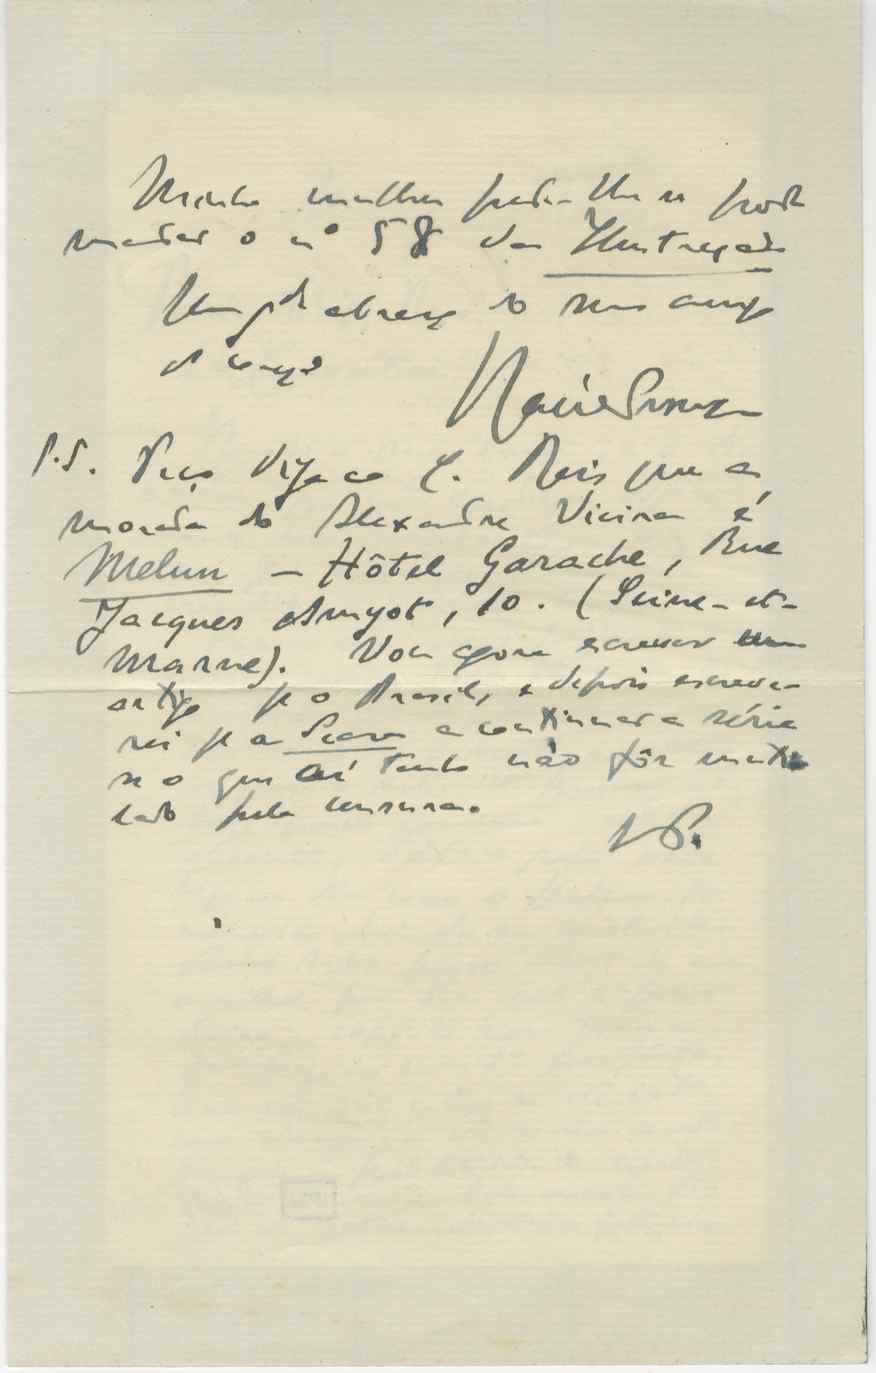 Minha mulher pede-lhe se pode
mandar o nº 58 da Ilustração
Um gde abraço do seu amigo
do coração
P.S. Peço diga ao C. Reis que a
morada do Alexandre Vieira é
Melun – Hôtel Garache, Rue
Jacques Amyot, 10. (Seine-et-
Marne). Vou agora escrever um
artigo p o Brasil, e depois escreve-
rei p a Seara a continuar a série
se o que aí tenho não fôr muti-
lado pela censura.